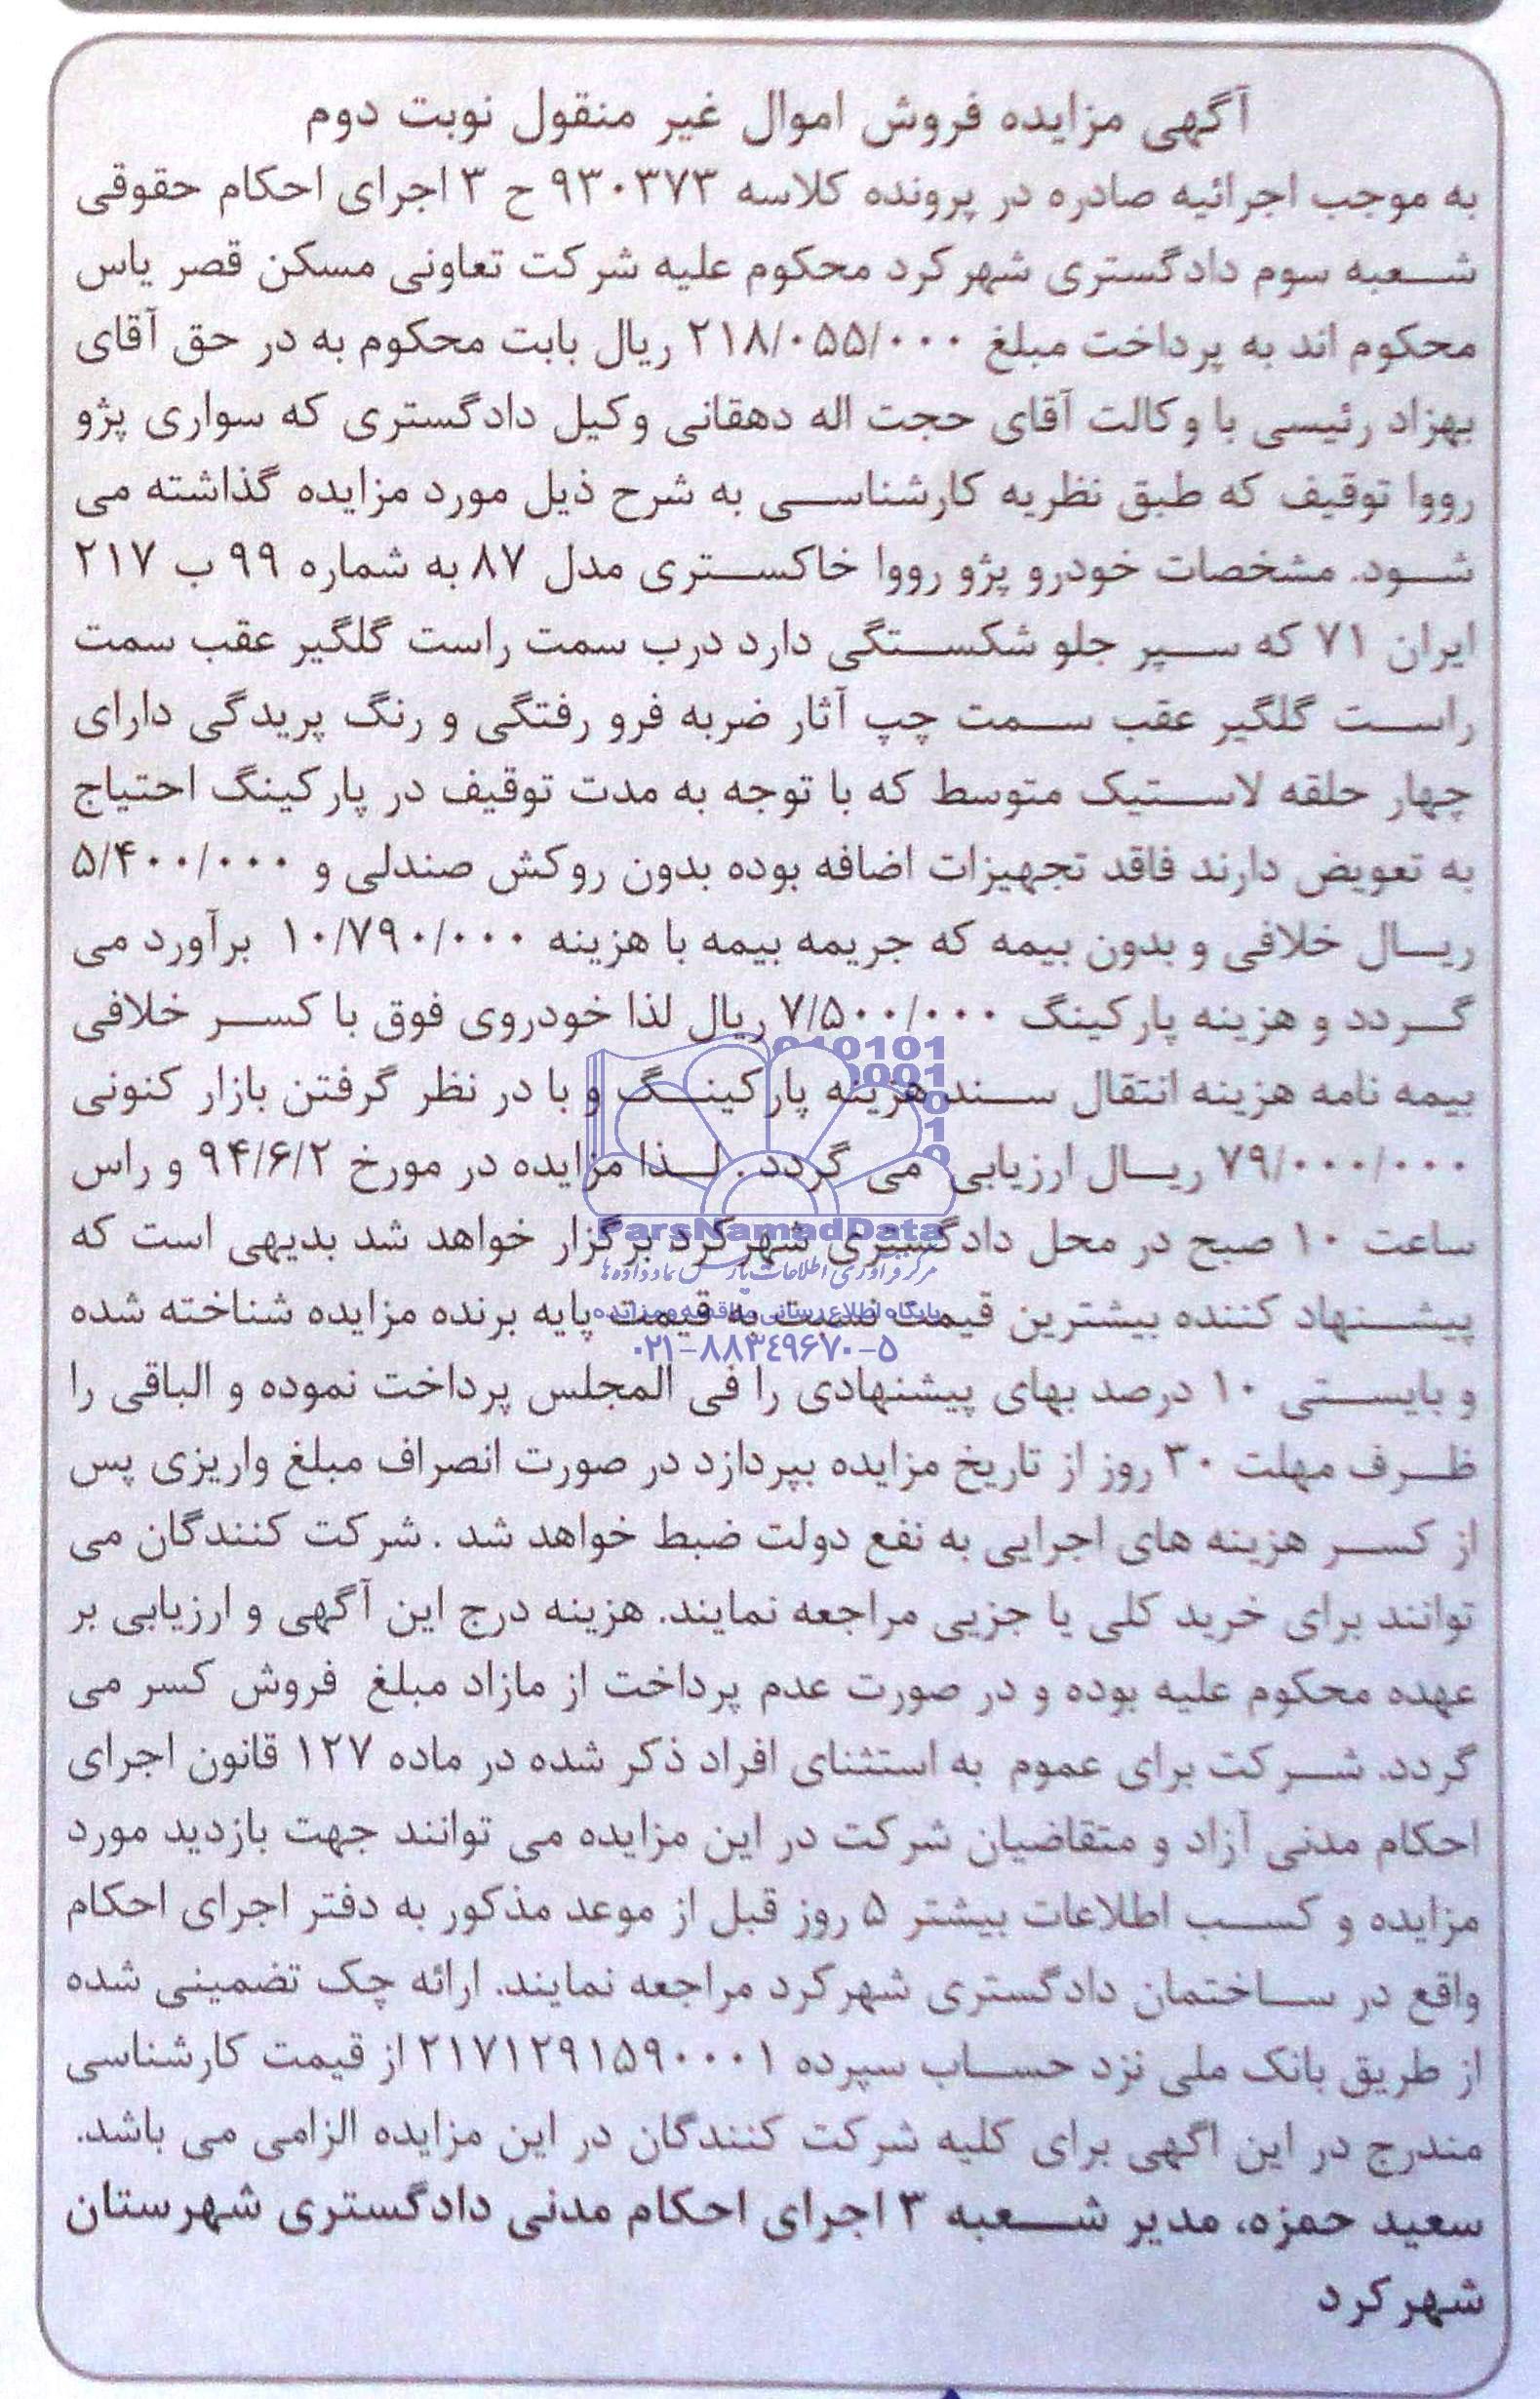 آگهی مزایده فروش اموال غیر منقول نوبت دوم
به موجب اجرائیه صادره در پرونده کلاسه ۹۳۰۳۷۳ ح ۳ اجرای احکام حقوقی
شعبه سوم دادگستری شهرکرد محکوم علیه شرکت تعاونی مسکن قصر یاس
محکوم اند به پرداخت مبلغ ۲۱۸/۰۵۵/۰۰۰ ریال بابت محکوم به در حق آقای
بهزاد رئیسی با وکالت آقای حجت اله دهقانی وکیل دادگستری که سواری پژو
رووا توقیف که طبق نظریه کارشناسی به شرح ذیل مورد مزایده گذاشته می
شود. مشخصات خودرو پژو رووا خاکستری مدل ۸۷ به شماره ۹۹ ب ۲۱۷
ایران ۷۱ که سپر جلو شکستگی دارد درب سمت راست گلگیر عقب سمت
راست گلگیر عقب سمت چپ آثار ضربه فرو رفتگی و رنگ پریدگی دارای
چهار حلقه لاستیک متوسط که با توجه به مدت توقیف در پارکینگ احتیاج
به تعویض دارند فاقد تجهیزات اضافه بوده بدون روکش صندلی و ۵/۴۰۰/۰۰۰
ریال خلافی و بدون بیمه که جریمه بیمه با هزینه ۱۰/۷۹۰/۰۰۰ برآورد می
گردد و هزینه پارکینگ ۷/۵۰۰/۰۰۰ ریال لذا خودروی فوق با کسر خلافی
بیمه نامه هزینه انتقال سند هزینه پارکینگ و با در نظر گرفتن بازار کنونی
۷۹/۰۰۰/۰۰۰ ریال ارزیابی می گردد. لذا مزایده در مورخ ۹۴/۶/۲ و راس
ساعت ۱۰ صبح در محل دادگستری شهرکرد برگزار خواهد شد بدیهی است که
پیشنهاد کننده بیشترین قیمت نسبت به قیمت پایه برنده مزایده شناخته شده
و بایستی ۱۰ درصد بهای پیشنهادی را فی المجلس پرداخت نموده و الباقی را
ظرف مهلت ۳۰ روز از تاریخ مزایده بپردازد در صورت انصراف مبلغ واریزی پس
از کسر هزینه های اجرایی به نفع دولت ضبط خواهد شد . شرکت کنندگان می
توانند برای خرید کلی یا جزیی مراجعه نمایند. هزینه درج این آگهی و ارزیابی بر
عهده محکوم علیه بوده و در صورت عدم پرداخت از مازاد مبلغ فروش کسر می
گردد. شرکت برای عموم به استثنای افراد ذکر شده در ماده ۱۲۷ قانون اجرای
احکام مدنی آزاد و متقاضیان شرکت در این مزایده می توانند جهت بازدید مورد
مزایده و کسب اطلاعات بیشتر ۵ روز قبل از موعد مذکور به دفتر اجرای احکام
واقع در ساختمان دادگستری شهرکرد مراجعه نمایند. ارائه چک تضمینی شده
از طریق بانک ملی نزد حساب سپرده ۲۱۷۱۲۹۱۵۹۰۰۰۱ از قیمت کارشناسی
مندرج در این اگهی برای کلیه شرکت کنندگان در این مزایده الزامی می باشد.
سعید حمزه، مدیر شعبه ۳ اجرای احکام مدنی دادگستری شهرستان
شهرکرد
ParsNamadData
مرکز فرآوری اطلاعات پارس نماد داده ها
پایگاه اطلاع رسانی مناقصه و مزایده
۰۲۱-۸۸۳۴۹۶۷۰-۵